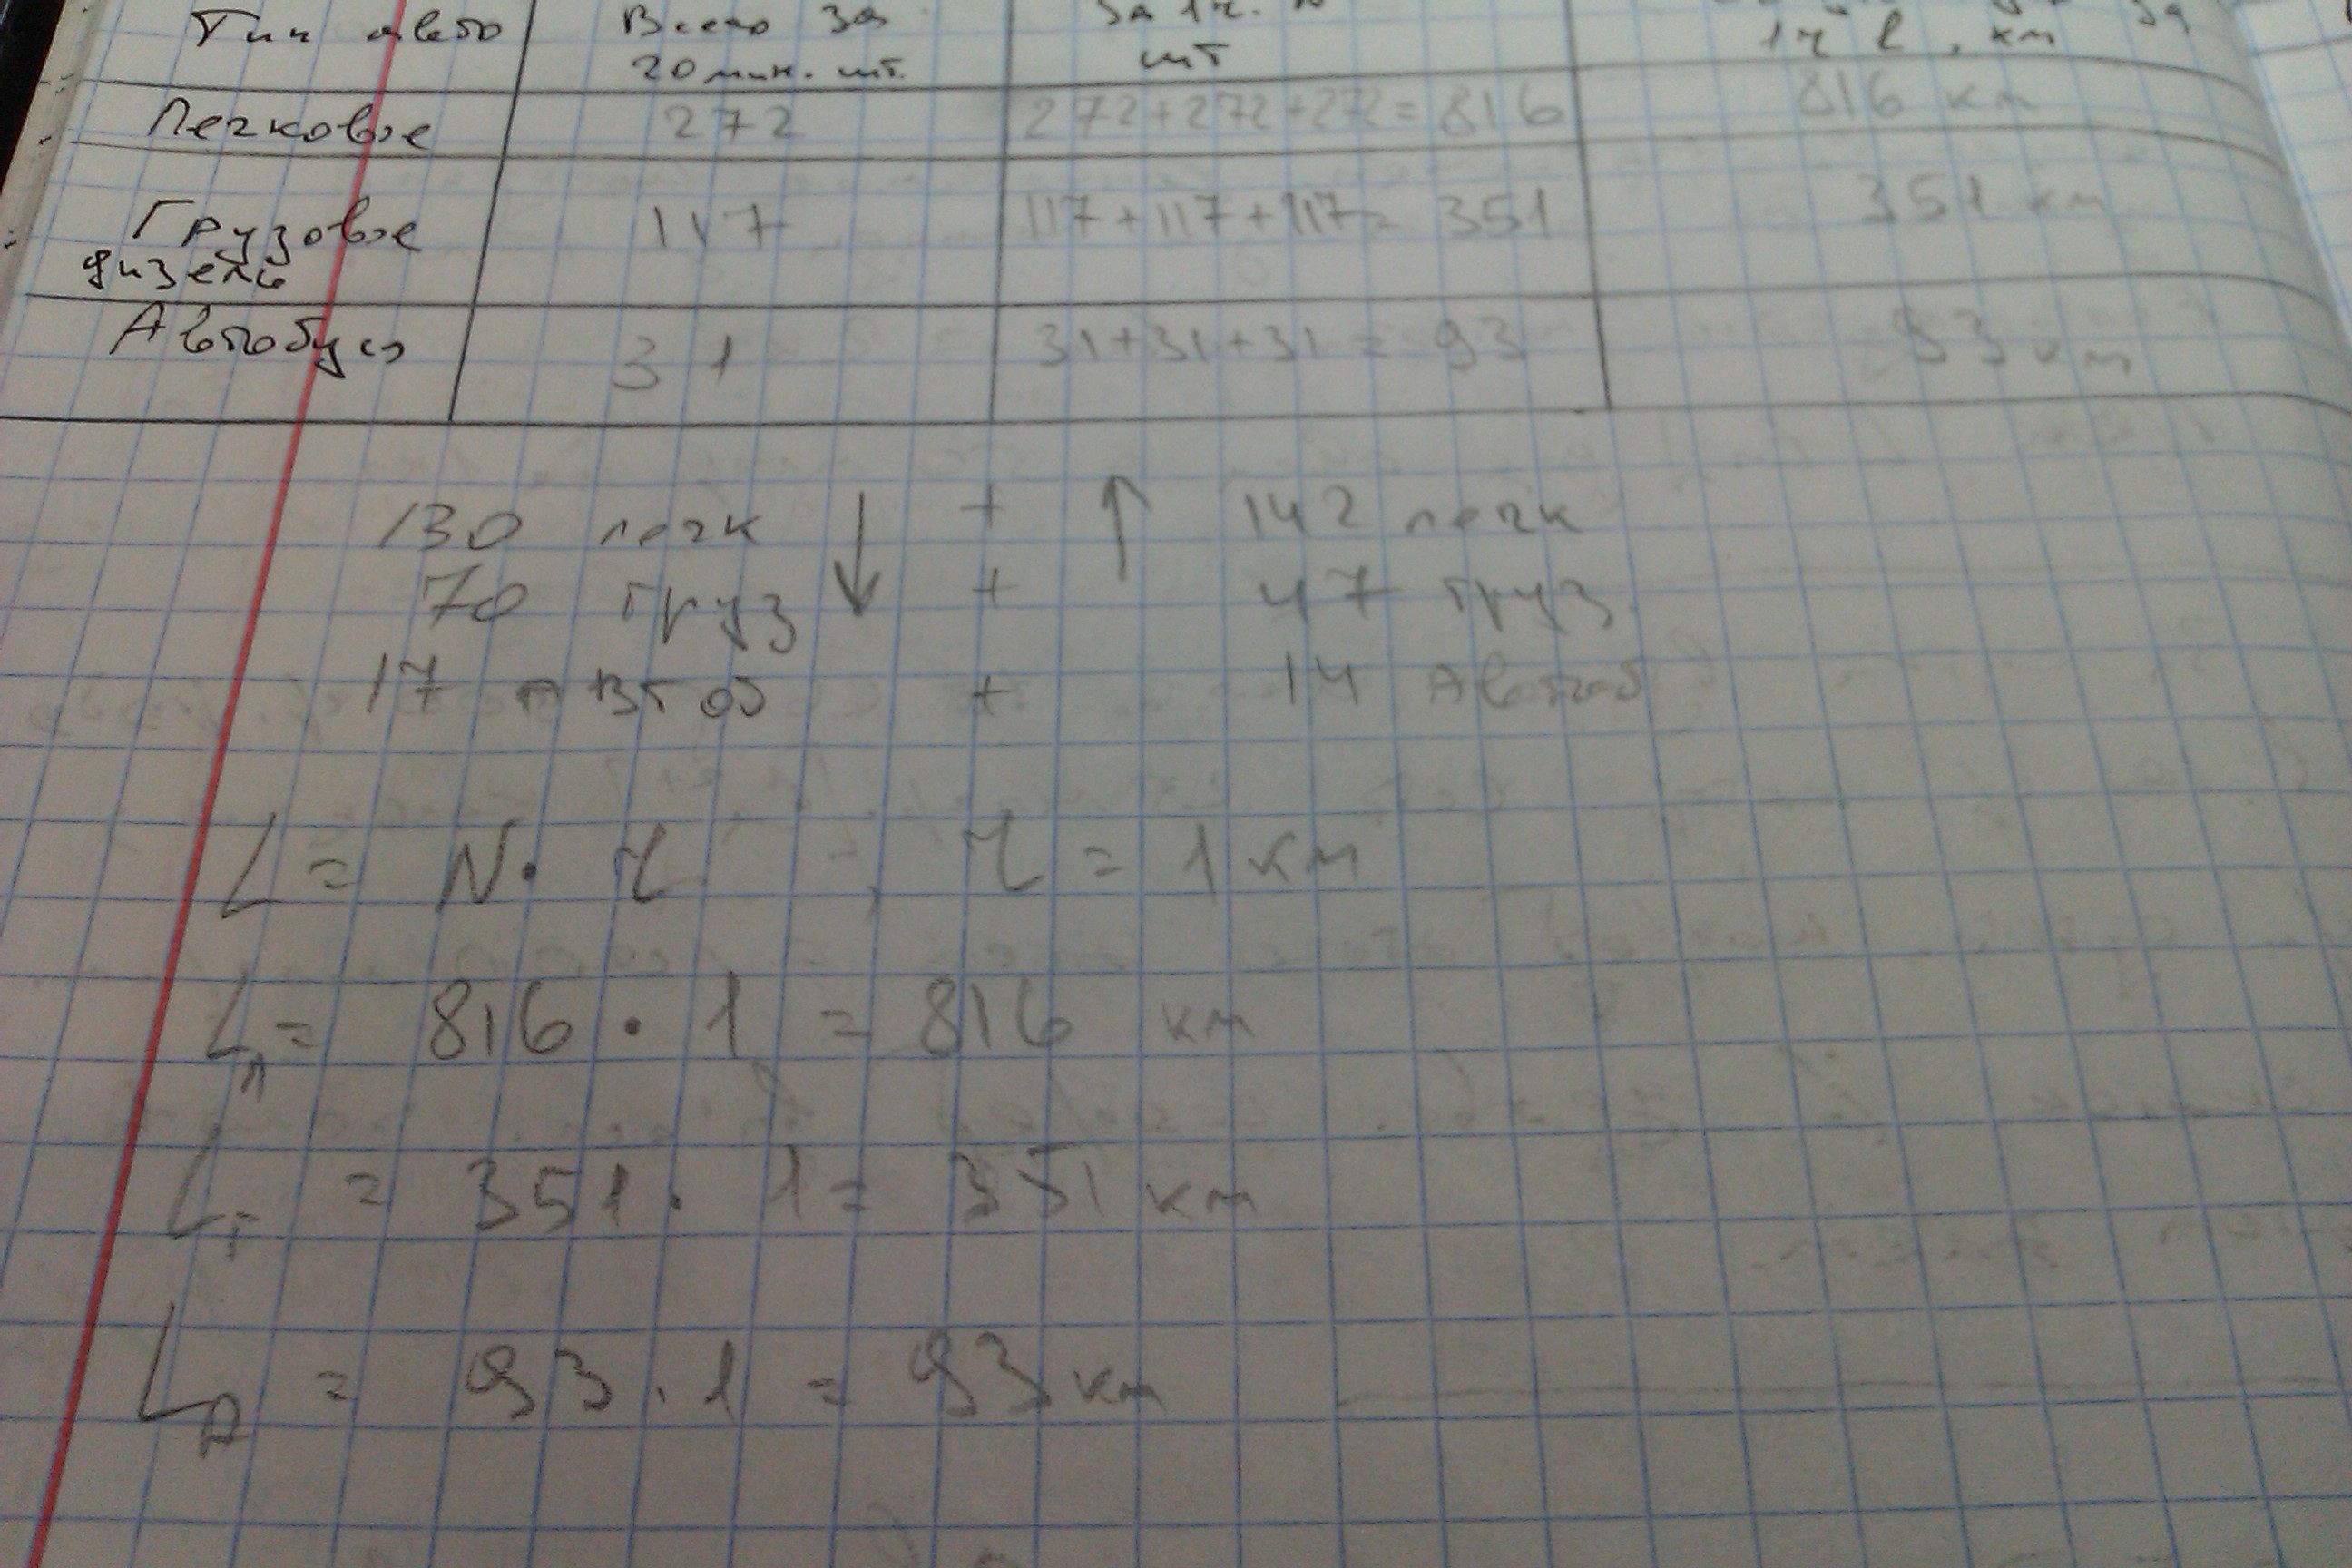 Тип авто Всего за За 1ч. N за
20 мин. шт. шт 1ч l, км
Легковые 272 272+272+272=816 816 км
Грузовые 117 117+117+117= 351 351 км
дизель
Автобусы 31 31+31+31 = 93 93 км
130 легк ↓ + ↑ 142 легк
70 груз + 47 груз.
17 АВтоб + 14 Автоб
L = N · l , l = 1 км
Lл = 816 · 1 = 816 км
Lг = 351 · 1 = 351 км
LА = 93 · 1 = 93 км